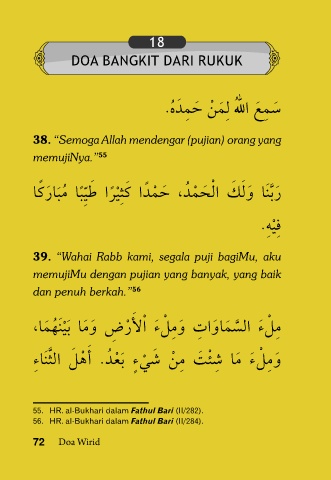 18
DOA BANGKIT DARI RUKUK
سَمِعَ اللهُ لِمَنْ حَمِدَهُ.
38. “Semoga Allah mendengar (pujian) orang yang
memujiNya.”55
رَبَّنَا وَلَكَ الْحَمْدُ، حَمْدًا كَثِيْرًا طَيِّبًا مُبَارَكًا
فِيْهِ.
39. “Wahai Rabb kami, segala puji bagiMu, aku
memujiMu dengan pujian yang banyak, yang baik
dan penuh berkah.”56
مِلْءَ السَّمَاوَاتِ وَمِلْءَ الْأَرْضِ وَمَا بَيْنَهُمَا،
وَمِلْءَ مَا شِئْتَ مِنْ شَيْءٍ بَعْدُ. أَهْلَ الثَّنَاءِ
55. HR. al-Bukhari dalam Fathul Bari (II/282).
56. HR. al-Bukhari dalam Fathul Bari (II/284).
72 Doa Wirid